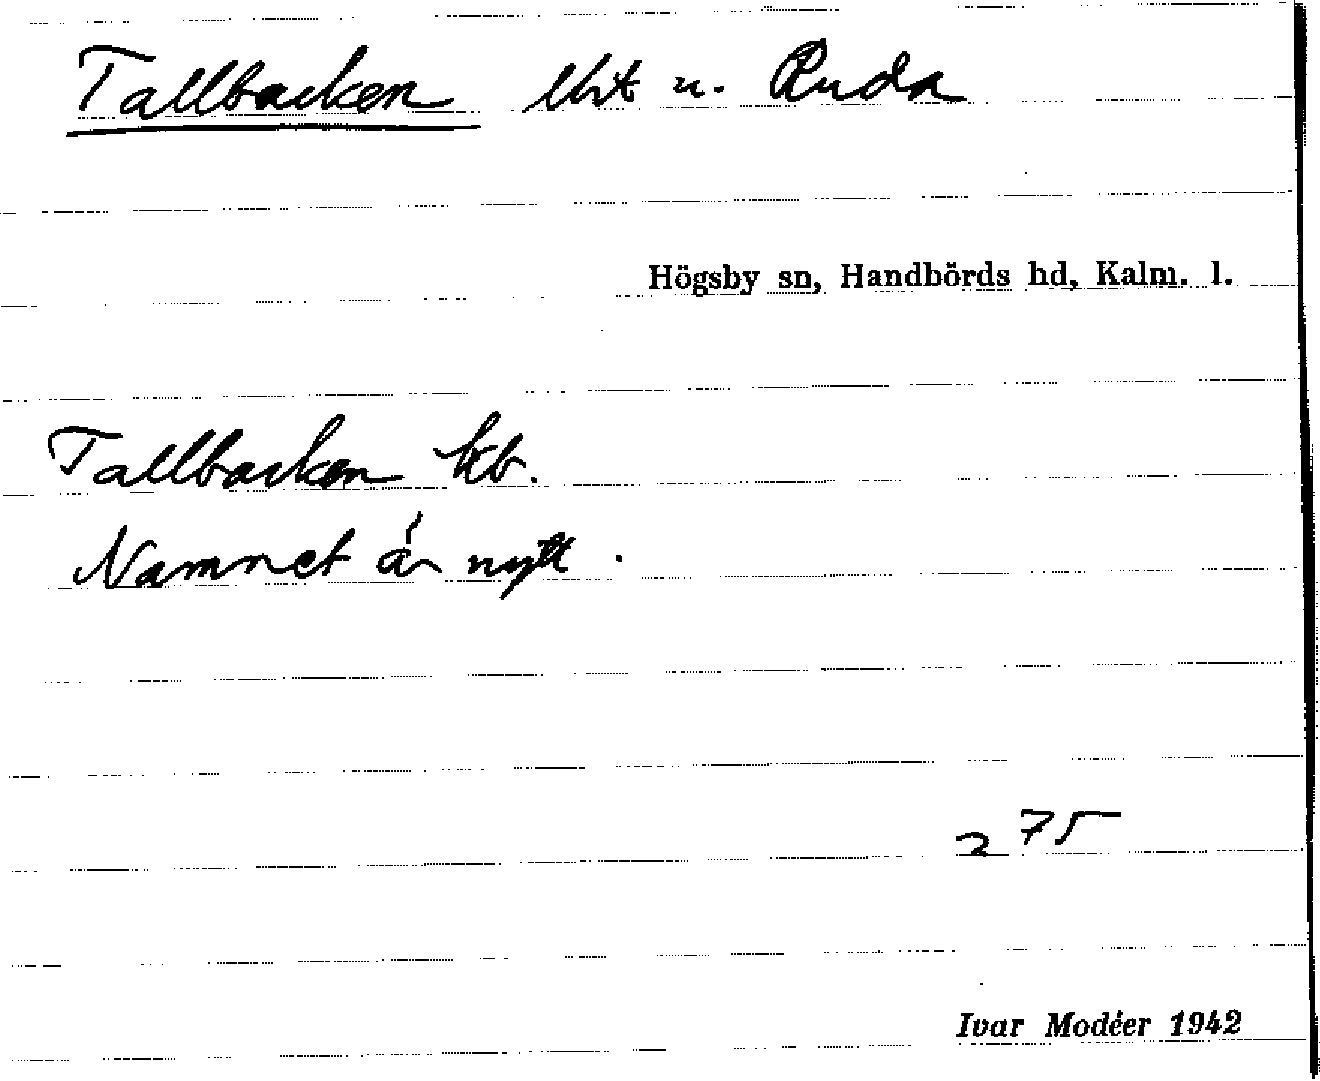 Tallbacken lht u. Ruda
Högsby sn, Handbörds hd, Kalm. l.
Tallbacken kb.
Namnet är nytt.
275
Ivar Modéer 1942